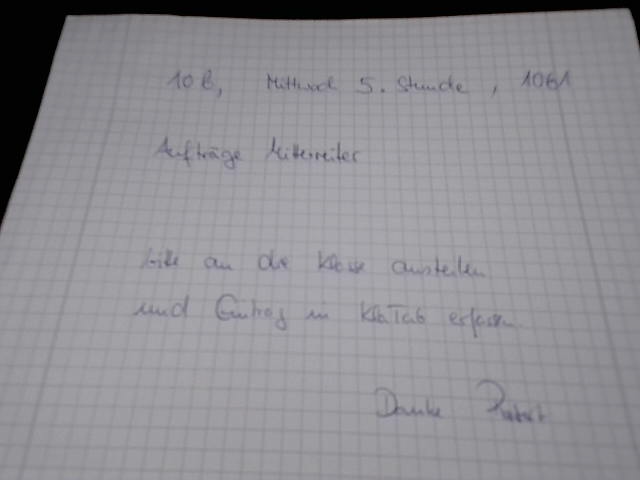 10b, Mittwoch 5. Stunde, 
Aufträge Mitterreiter
bitte an die Klasse austeilen
und Eintrag in KlaTab erfassen.
Danke